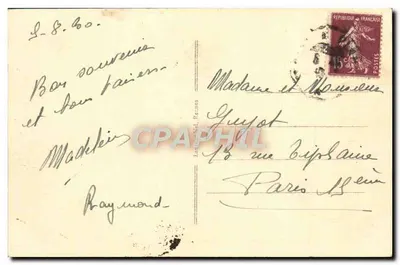 5-8-30.
Bon souvenir
et bons baisers
Madeleine
Raymond
Madame et Monsieur
Guyot
13 rue Tiphaine
Paris 15ème
REPUBLIQUE FRANÇAISE
POSTES
CPAPHIL.COM